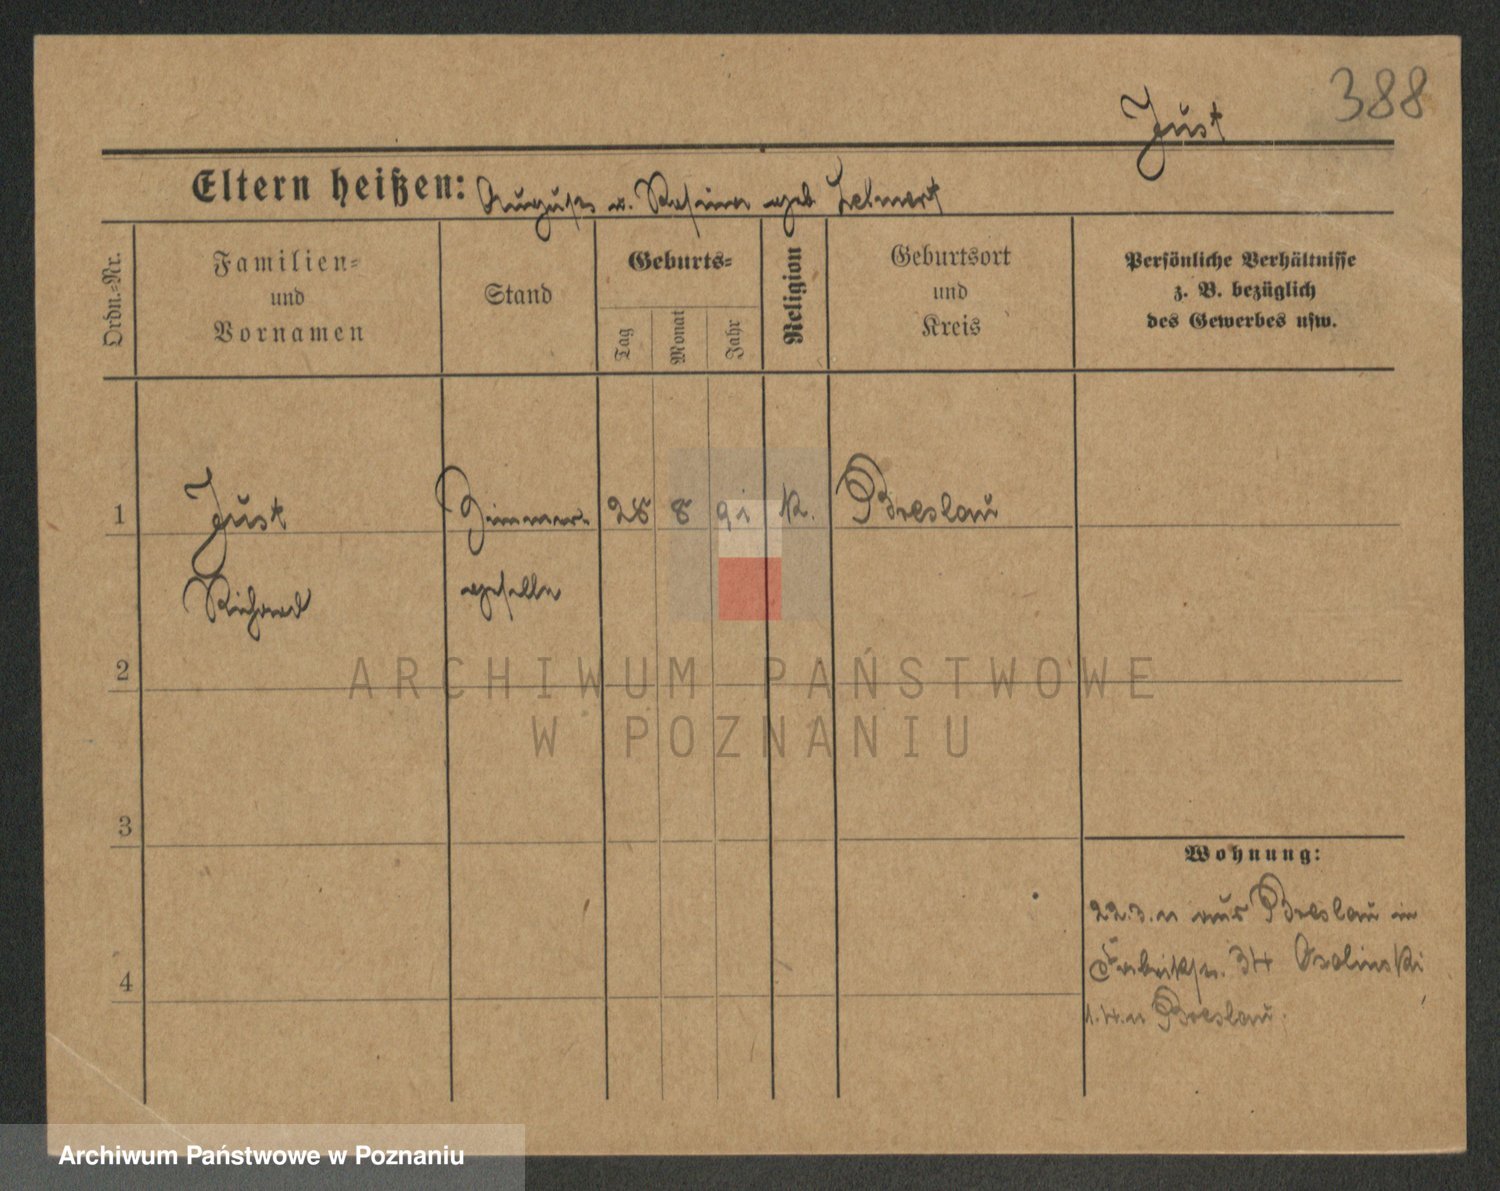 388
Just
Eltern heißen: August u. Rosina geb
Ordn.-Nr.
Familien-
und
Vornamen
Stand
Geburts-
Tag
Monat
Jahr
Religion
Geburtsort
und
Kreis
Persönliche Verhältnisse
z. B. bezüglich
des Gewerbes usw.
1
Just
Zimmer-
28 8 91 K. Breslau
Richard
geselle
2
ARCHIWUM PAŃSTWOWE
W POZNANIU
3
Wohnung:
22.3.11 aus Breslau in
4
Fabrikstr. 34 Osolinski
1.4.11 Breslau.
Archiwum Państwowe w Poznaniu